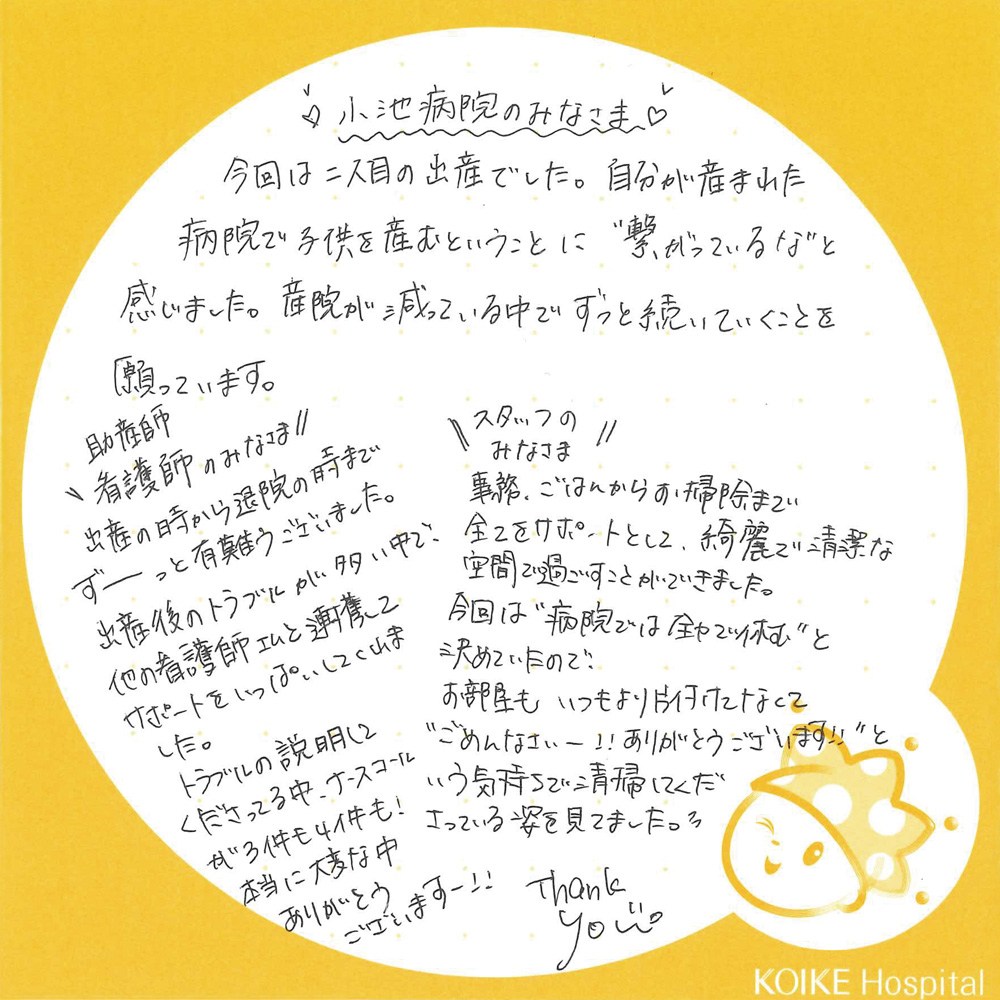 ♡ 小池病院のみなさま ♡
今回は二人目の出産でした。自分が産まれた
病院で子供を産むということに"繋がっているな"と
感じました。産院が減っている中でずっと続いていくことを
願っています。
助産師
\ 看護師のみなさま //
出産の時から退院の時まで
ずーーっと有難うございました。
出産後のトラブルが多い中で、
他の看護師さんと連携して
サポートをいっぱいしてくれま
した。
トラブルの説明して
くださってる中、ナースコール
が3件も4件も!
本当に大変な中
ありがとう
ございますー!!
\\ スタッフの //
みなさま
事務、ごはんからお掃除まで
全てをサポートとして、綺麗で清潔な
空間で過ごすことができました。
今回は"病院では全力で休む"と
決めていたので、
お部屋もいつもより片付けてなくて
"ごめんなさいー!!ありがとうございます!!"と
いう気持ちで清掃してくだ
さっている姿を見てました。
Thank
you
KOIKE Hospital